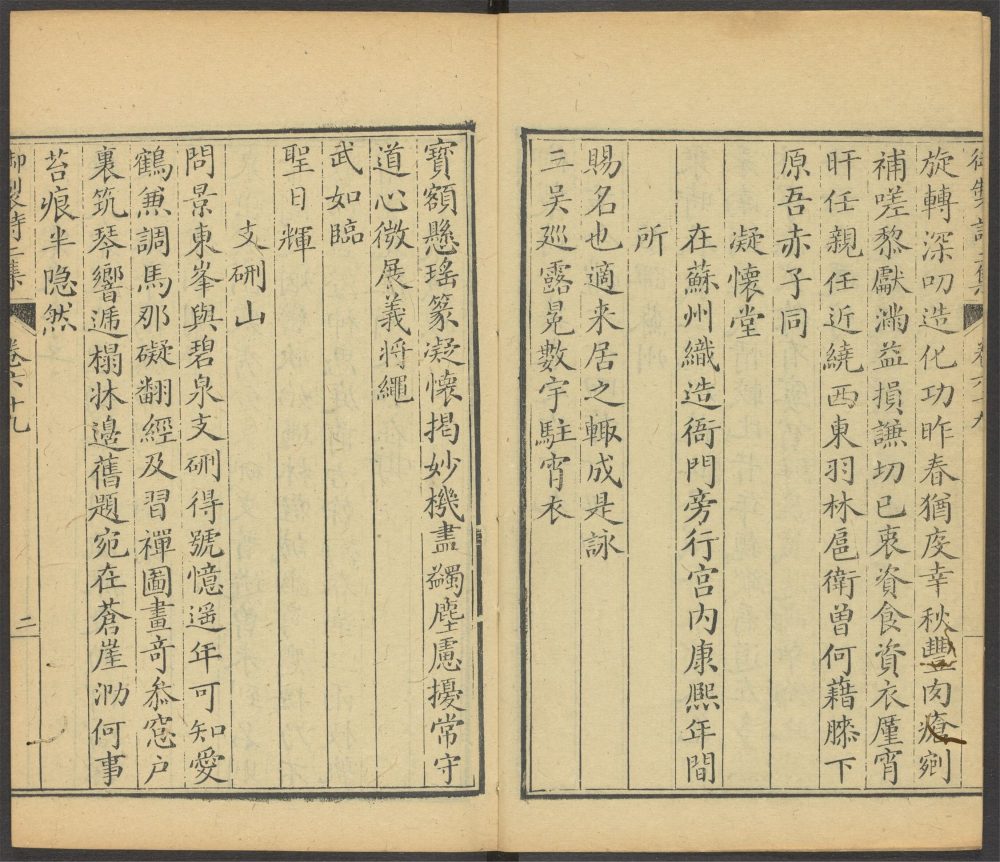 御製詩二集 卷六十九
旋轉深叨造化功昨春猶庋幸秋豐肉瘡剜
補嗟黎獻滿益損謙切已衷資食資衣廑宵
旰任親任近繞西東羽林扈衛曾何藉膝下
原吾赤子同
凝懷堂
在蘇州織造衙門旁行宮內康熙年間
所
賜名也適来居之輙成是詠
三吳廵露冕數宇駐宵衣
寶額懸瑤篆凝懷揭妙機盡蠲塵慮擾常守
道心微展義将繩
武如臨
聖日輝
支硎山
問景東峯與碧泉支硎得號憶遥年可知愛
鶴兼調馬那礙翻經及習禪圖畫奇叅窓户
裏筑琴響遞榻牀邊舊題宛在蒼崖泐何事
苔痕半隐然
御製詩二集 卷六十九 二